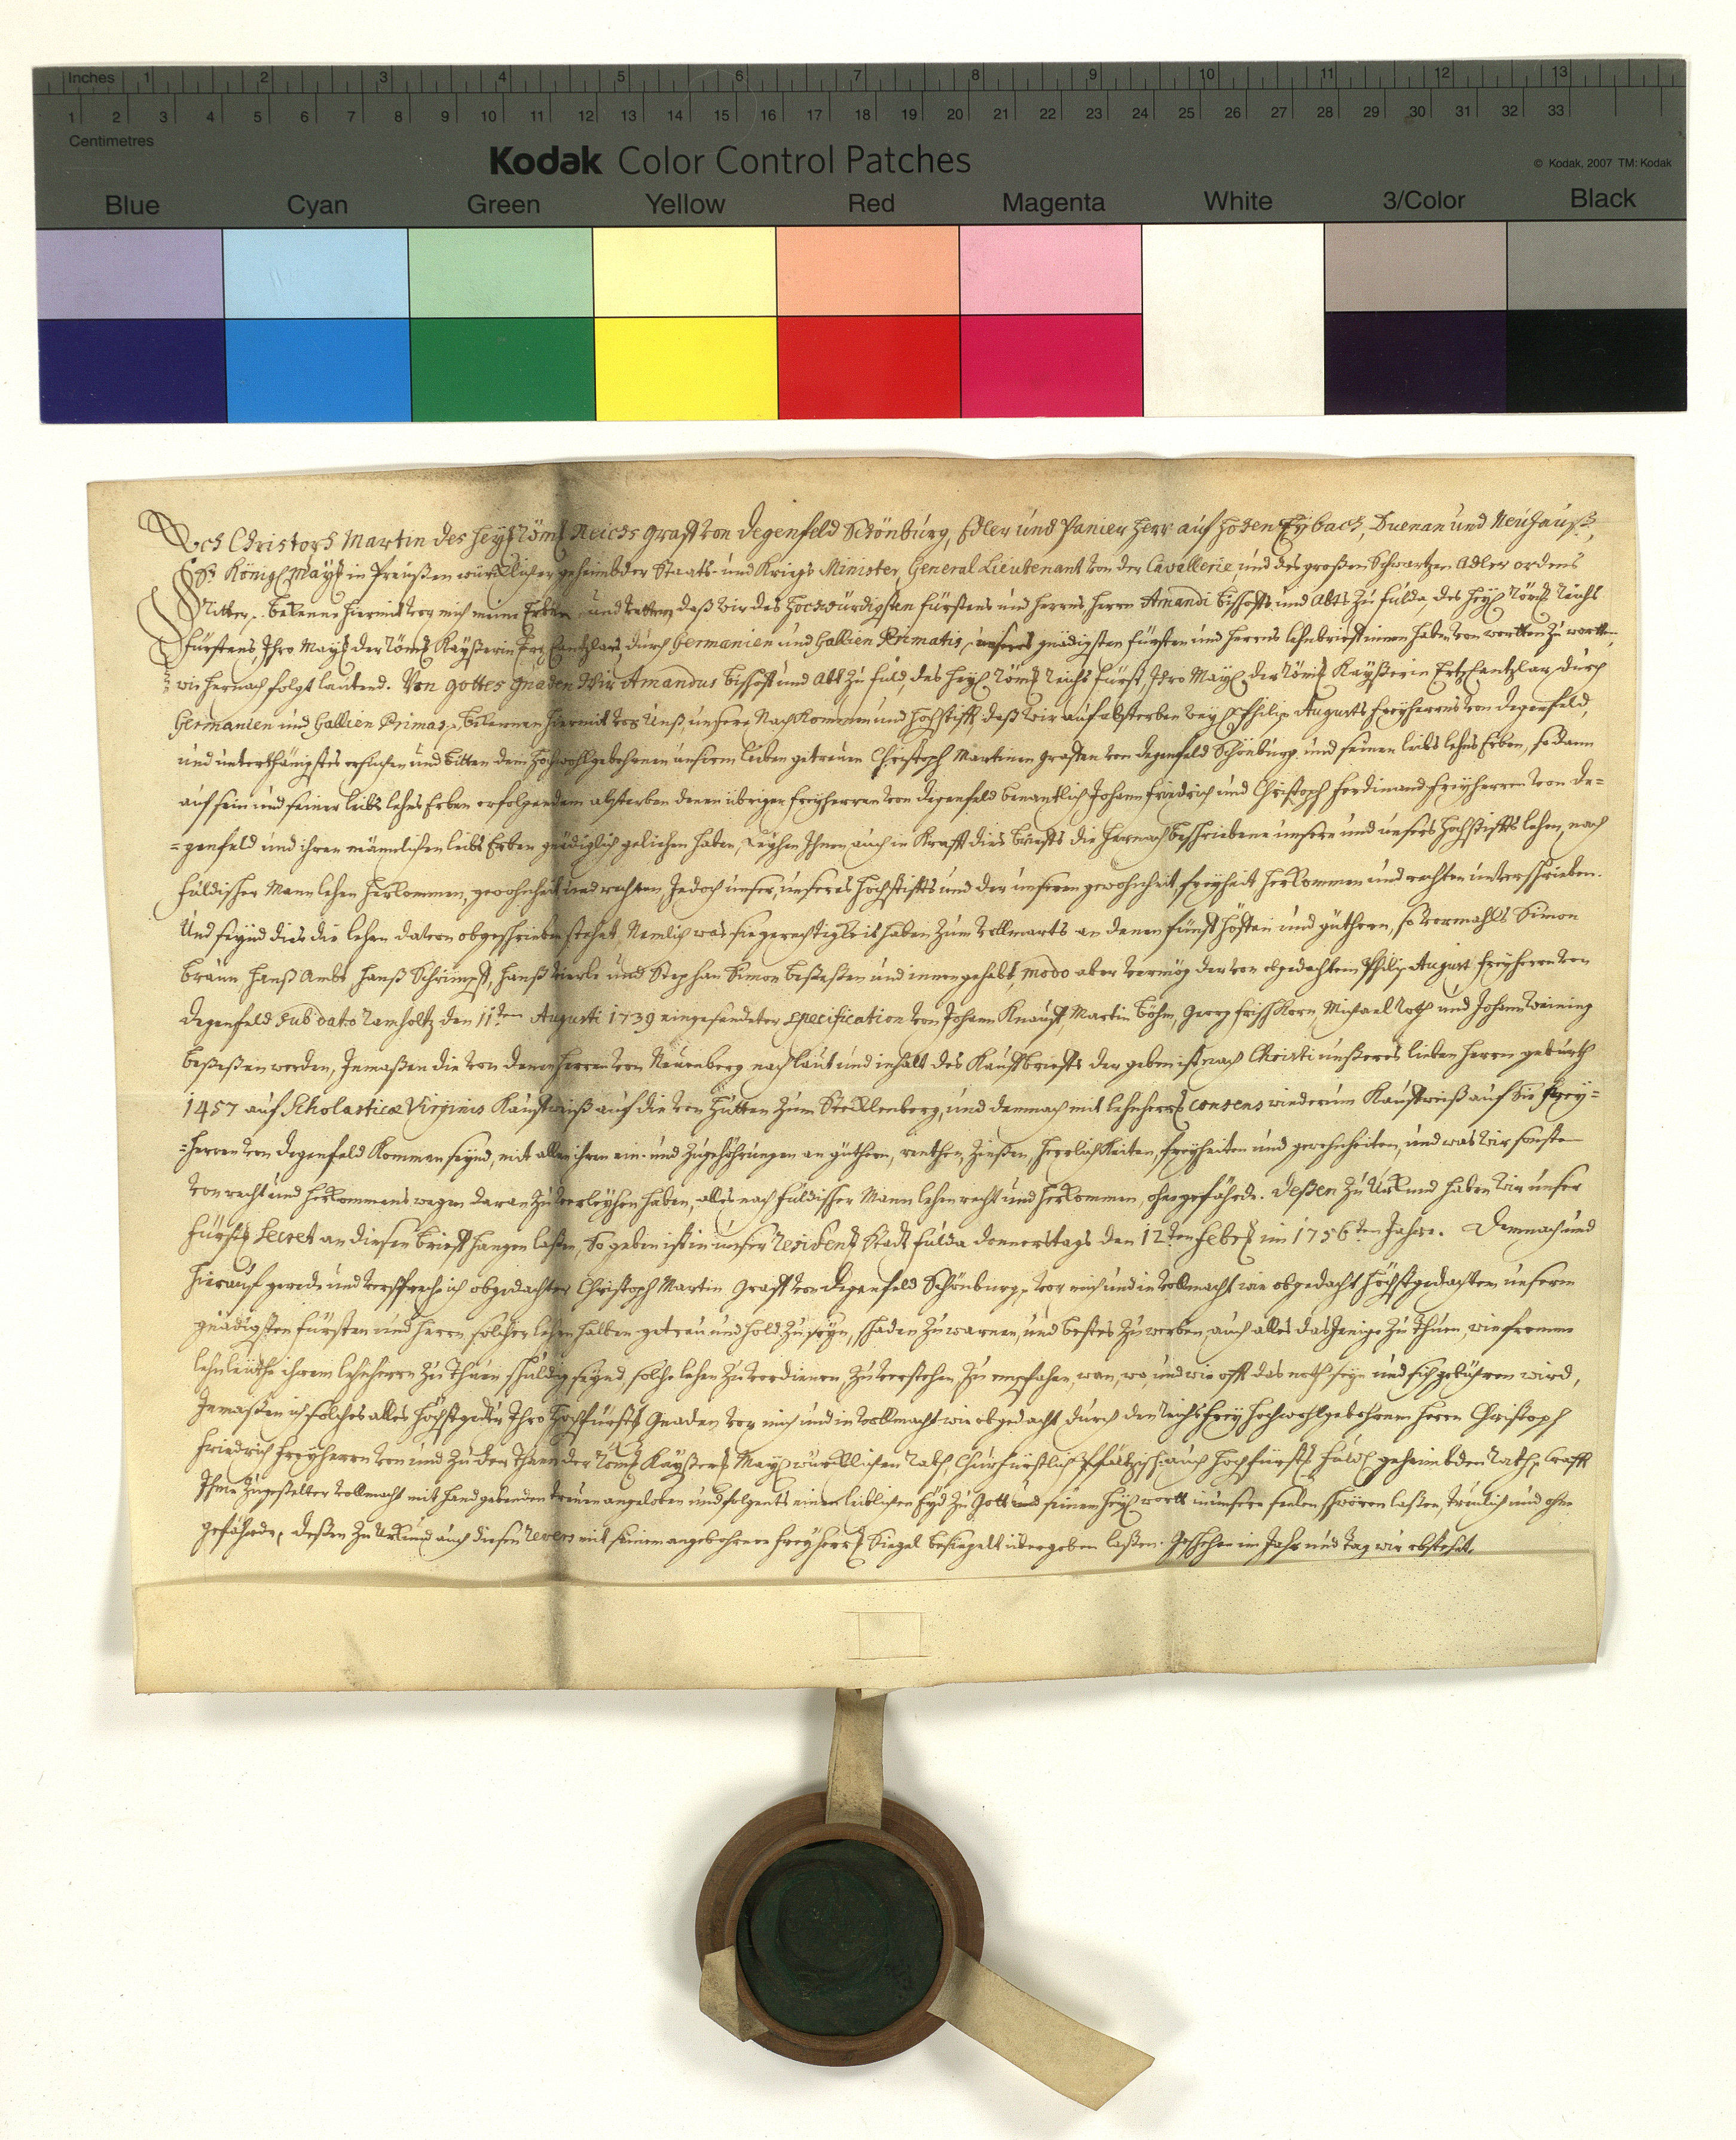 Inches 1 2 3 4 5 6 7 8 9 10 11 12 13
1 2 3 4 5 6 7 8 9 10 11 12 13 14 15 16 17 18 19 20 21 22 23 24 25 26 27 28 29 30 31 32 33
Centimetres
Kodak Color Control Patches
© Kodak, 2007 TM: Kodak
Blue Cyan Green Yellow Red Magenta White 3/Color Black
Ich Christoph Martin des Heyl Röml Reichs Graff von Degenfeld Schönburg, Edler und Panier Herr auf Hohen Eybach, Duenan und Neuhauß,
Sr Königl Mayt in Preußen würcklicher geheimbder Staats- und Kriegs Minister, General Lieutenant von der Cavallerie, und des großen Schwartzen Adler ordens
Ritter, Bekenne hiermit vor mich meine Erben und Vettern, daß wir des Hochwürdigsten Fürstens und Herrns, Herrn Amandi Bischoffs und Abts zu Fulda, des Heyl Röml Reichs
Fürstens, Ihro Mayt der Röml Kayßerin Ertz Cantzlars, durch Germanien und Gallien Primatis, unseres gnädigsten Fürsten und Herrns lehnbrieff innen haben von wortten zu wortten,
wie hernach folgt lautend. Von Gottes Gnaden Wir Amandus Bischoff und Abt zu Fuld, des Heyl Röml Reichs Fürst, Ihro Mayt der Röml Kayßerin Ertz Cantzlar, durch
Germanien und Gallien Primas, Bekennen hiermit vor Unß, unsere Nachkommen und Hochstifft, daß wir auf absterben weyl Philip Augusts Freyherrns von Degenfeld,
und unterthänigstes ersuchen und bitten dem Hochwohlgebohrnen unserm lieben getreuen Christoph Martinen Graffen von Degenfeld Schönburg und seinen leibs lehns Erben, sodann
auf sein und seiner leibs lehns Erben erfolgendem absterben denen übrigen Freyherren von Degenfeld benantlich Johann Friedrich und Christoph Ferdinand Freyherren von De=
=genfeld und ihren männlichen leibs Erben gnädiglich geliehen haben, Leyhen Ihnen auch in Krafft dies brieffs die hernach beschriebene unsere und unsers Hochstiffts lehen, nach
Fuldischer Mannlehen herkommen, gewohnheit und rechten Jedoch unser, unseres Hochstiffts und der unseren gewohnheit, freyheit herkommen und rechten unverschrieben.
Und seynd dies die lehen davon obgeschrieben stehet, Nemlich was sie gerechtigkeit haben zum Vollmarts an denen fünff höffen und güthern, so vormahls Simon
Braun, Hanß Ambt, Hanß Schrimpff, Hanß und Stephan Simon besessen und innen gehabt, modo aber vermög der von obgedachtem Philip August Freyherrn von
Degenfeld sub dato Ramholtz den 11ten Augusti 1739 eingesendeter specification von Johann Knauff, Martin Böhm, Georg Frischkorn, Michael Roth und Johann Weining
beseßen werden, Inmaßen die von denen Herren von Neuenberg nach laut und inhalt des Kauffbrieffs der geben ist nach Christi unßeres lieben Herrn geburth
1457 auf Scholasticæ Virginis Kauffweiß auf die von Hutten zum Stecklenberg, und demnach mit lehnherrl consens wiederum Kauffweiß auf die Frey=
=herren von Degenfeld kommen seynd, mit allen ihren ein- und zugehöhrungen an güthern, renthen, zinßen, herrlichkeiten, freyheiten und gewohnheiten, und was wir sonsten
von recht und herkommens wegen daran zu verleyhen haben, alles nach Fuldischer Mannlehen recht und herkommen, ohngefährde. Deßen zu Urkund haben wir unser
Fürstl Secret an diesen brieff hangen laßen, So geben ist in unser Residentz Stadt Fulda donnerstags den 12ten Febrl im 1756ten Jahre. Demnach und
hierauf gerede und versprech ich obgedachter Christoph Martin Graff von Degenfeld Schönburg, vor mich und in vollmacht wie obgedacht höchstgedachtem unserm
gnädigsten Fürsten und Herrn, solcher lehen halben getreu und hold zu seyn, schaden zu warnen, und bestes zu werben, auch alles das jenige zu thun, wie fromme
lehnleuthe ihrem lehnherrn zu thuen schuldig seynd, solche lehen zu verdienen, zu verstehen, zu empfahen, wan, wo, und wie offt das noth seyn und sich gebühren wird,
Inmaßen ich solches alles höchstged Ihro Hochfürstl Gnaden vor mich und in vollmacht wie obgedacht durch den Reichs frey Hochwohlgebohrnen Herrn Christoph
Friedrich Freyherrn von und zu der Thann der Röml Kayßerl Mayt würcklichen Rath, Churfürstlich Pfältzisch auch Hochfürstl Fuldl geheimbden Rath, Crafft
Ihme zugestelter vollmacht mit handgebenden treuen angeloben und folgents einen leiblichen Eyd zu Gott und seinem Heyl wortt in unsere seelen schwören laßen, treulich und ohne
gefährde, deßen zu Urkund auch diesen Revers mit seinem angebohrnen Freyherrl Siegel besiegelt übergeben laßen. Geschehen im Jahr und tag wie obstehet.